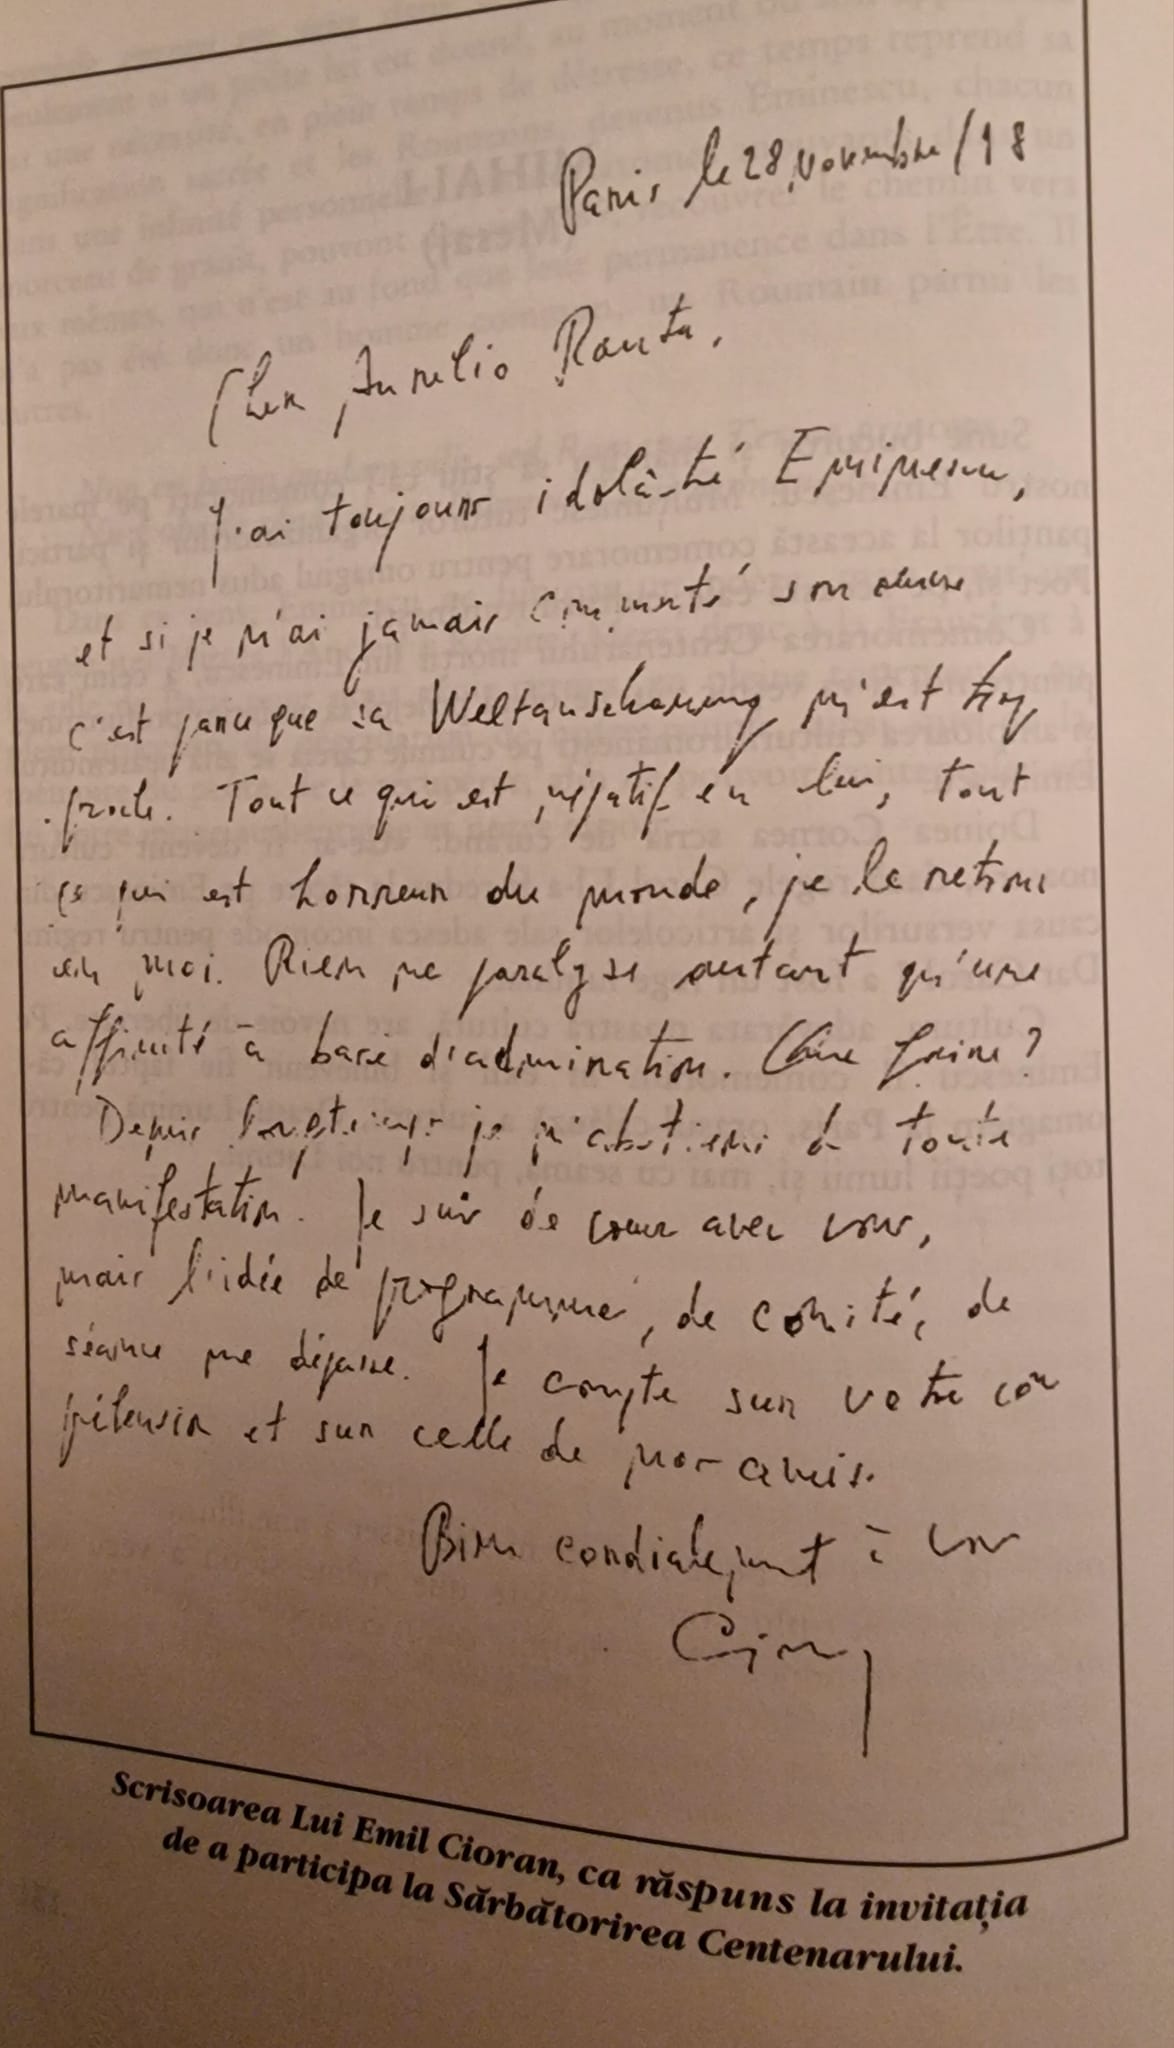 Paris le 28 novembre /18
Cher Aurelio Rauta,
J'ai toujours idolâtré Eminescu,
et si je n'ai jamais commenté son œuvre
c'est parce que sa Weltanschauung m'est trop
proche. Tout ce qui est négatif en lui, tout
ce qui est horreur du monde, je le retrouve
en moi. Rien ne paralyse autant qu'une
affinité à base d'admiration. Que faire ?
Depuis longtemps je m'abstiens de toute
manifestation. Je suis de cœur avec vous,
mais l'idée de programme, de comité, de
séance me dépasse. Je compte sur votre com
pétence et sur celle de nos amis.
Bien cordialement à vous
Cioran
Scrisoarea Lui Emil Cioran, ca răspuns la invitația
de a participa la Sărbătorirea Centenarului.